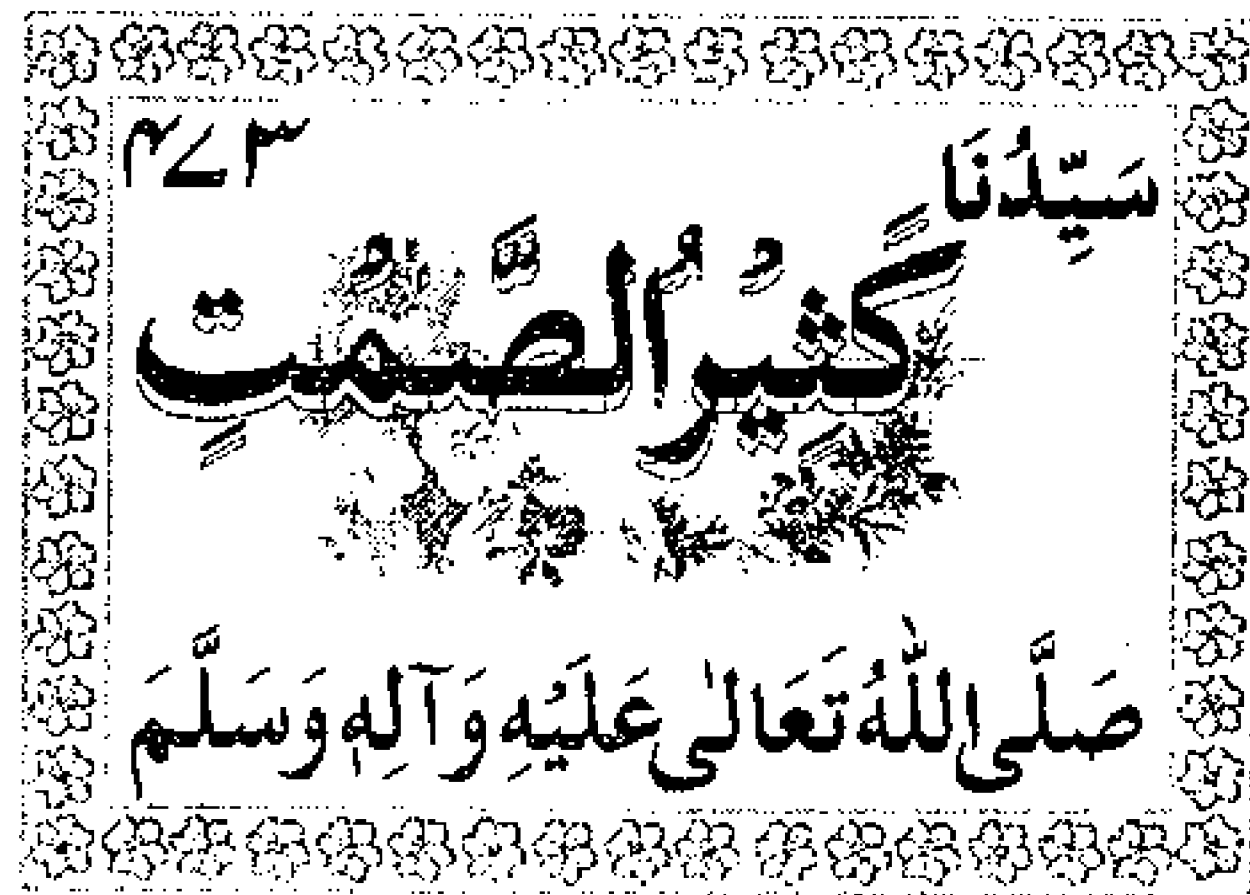 سَيِّدُنَا ۴۷۳
كَثِيْرُ الصَّمْتِ
صَلَّى اللّٰهُ تَعَالٰى عَلَيْهِ وَآلِهٖ وَسَلَّمَ